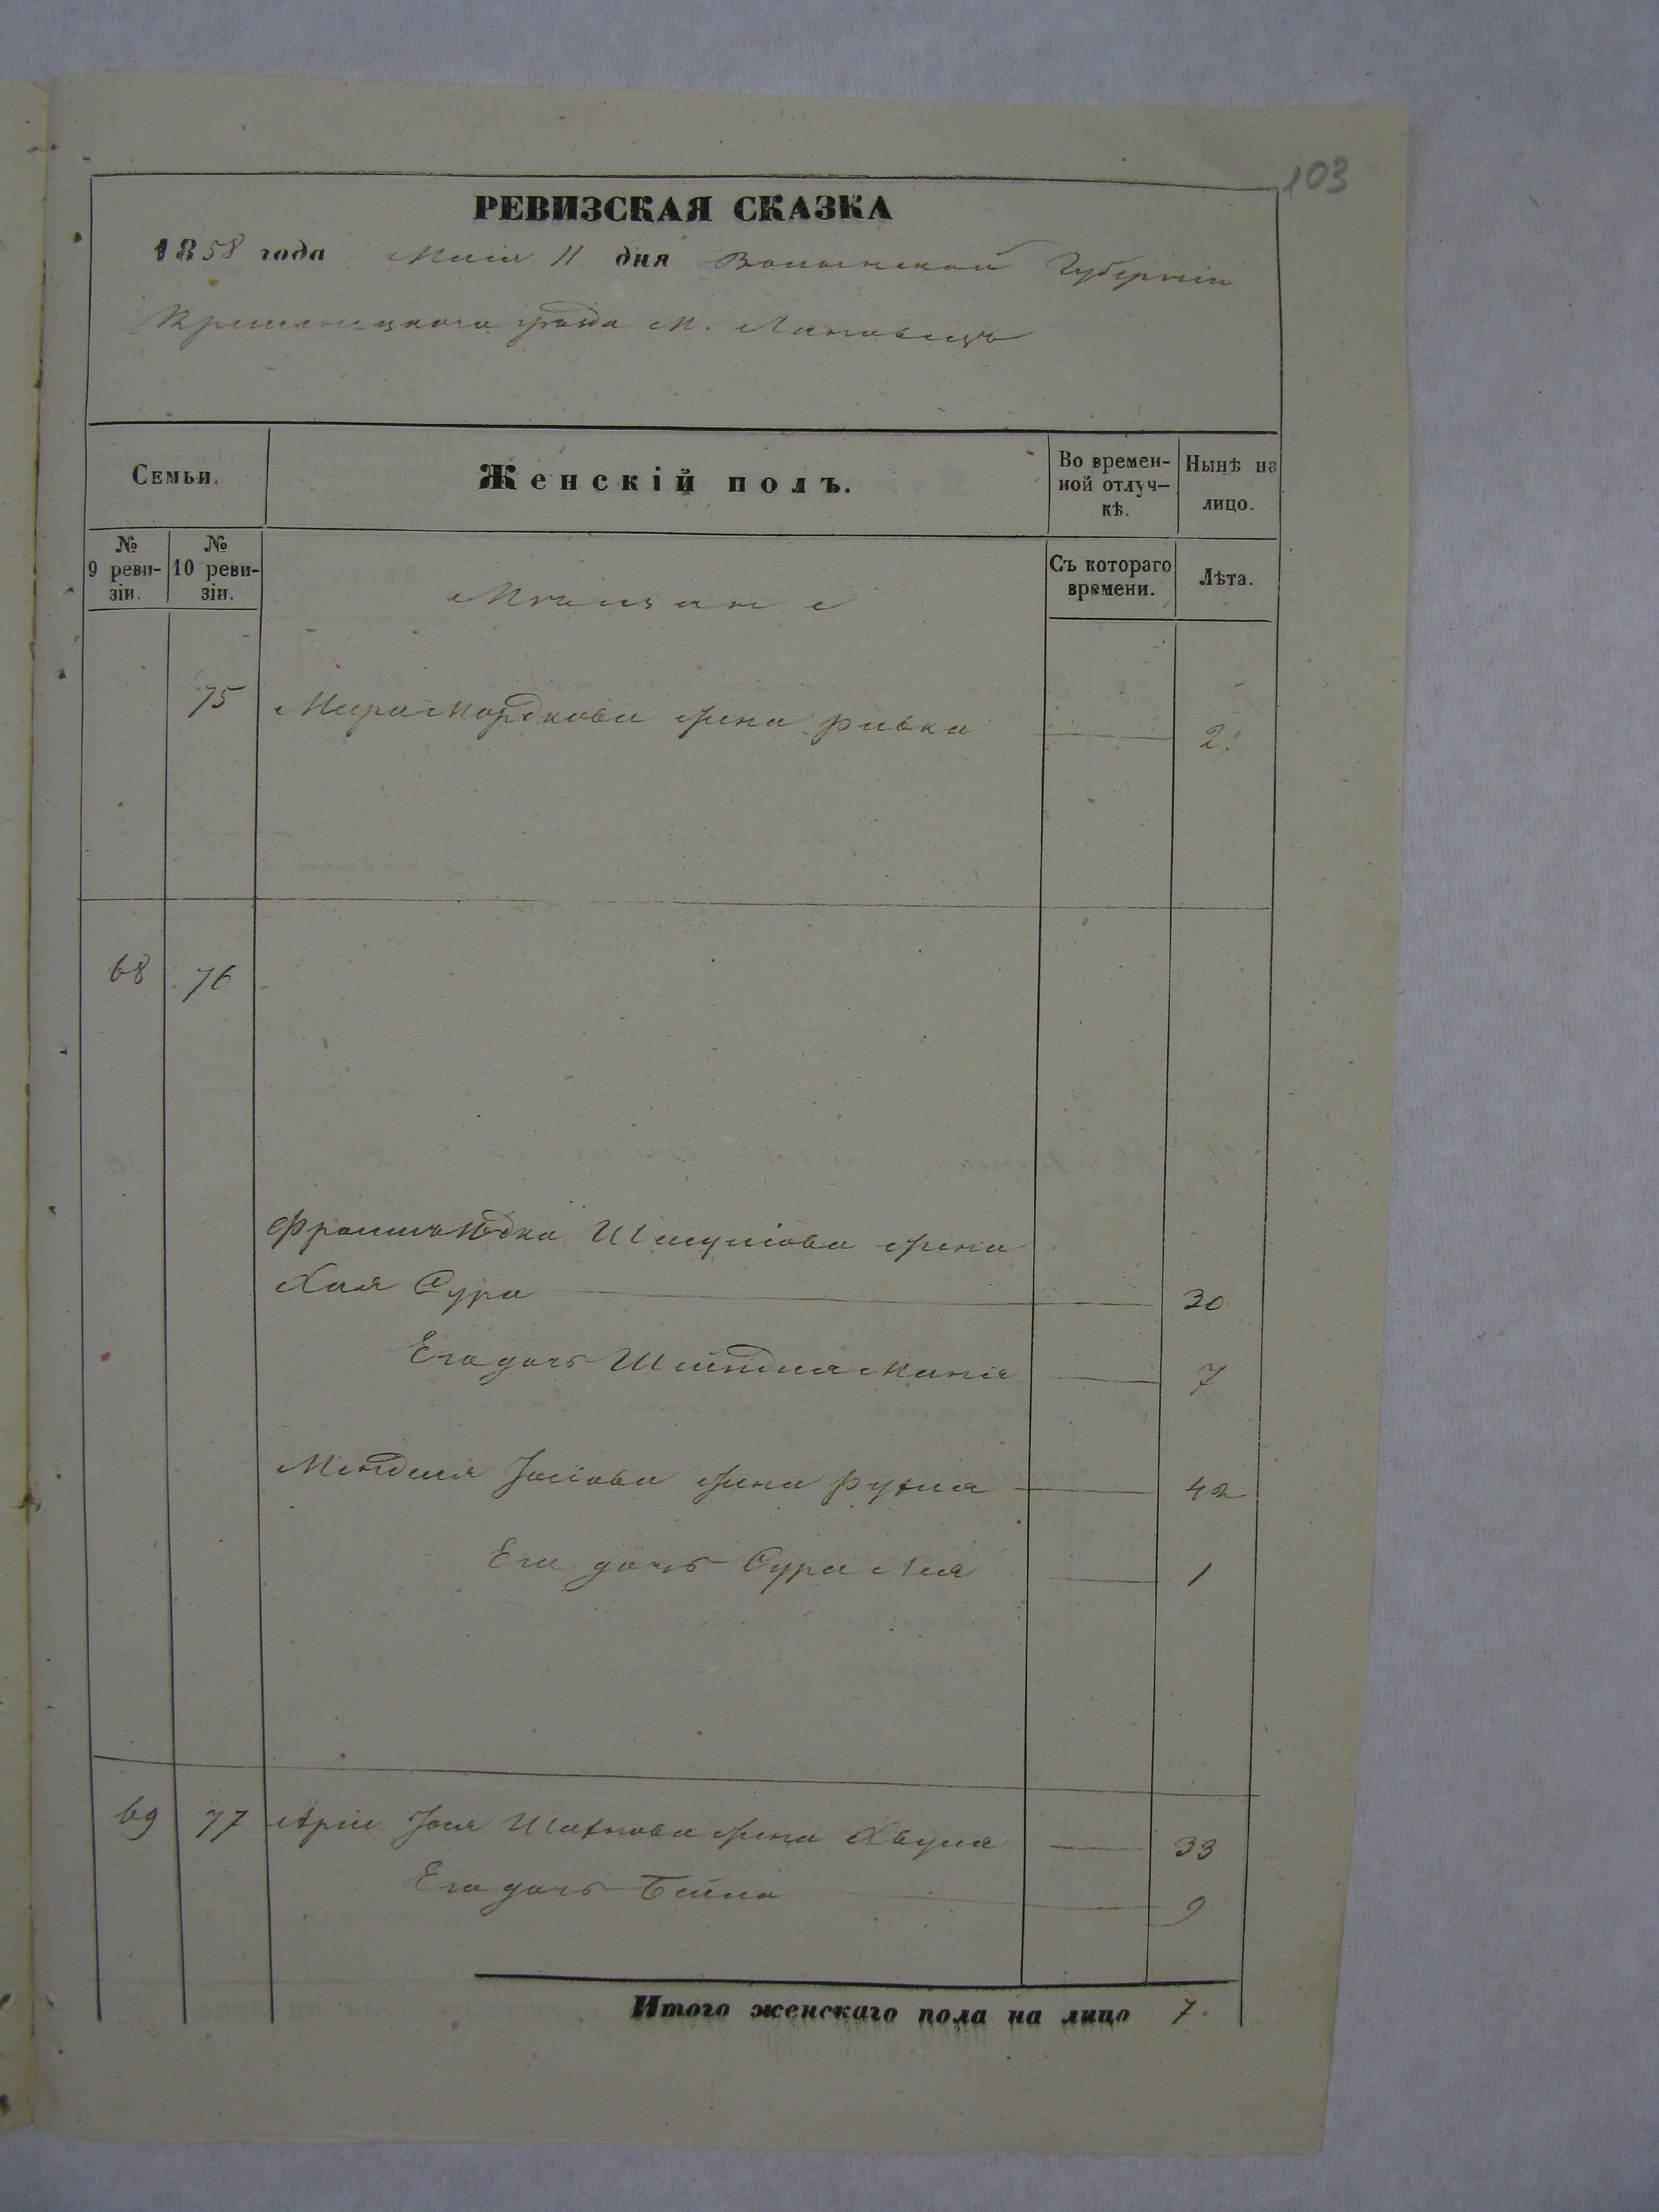 103
РЕВИЗСКАЯ СКАЗКА
1858 года Мая 11 дня Волынской Губерніи
Кременецкого уѣзда М. Лановецъ
Семьи.
Женскій полъ.
Во времен-
ной отлуч-
кѣ.
Нынѣ на
лицо.
№
9 реви-
зіи.
№
10 реви-
зіи.
Съ котораго
времени.
Лѣта.
Мѣщане
75 Мордкова жена Ривка 2
68 76
Юдка Шмулiова жена
Хая Сура 30
Его дочь Шейндля 7
Мендля Іосiова жена Рухля 42
Его дочь Сура Лея 1
69 77 Арiи Іоля жена Хвуля 33
Его дочь Бейла 9
Итого женскаго пола на лицо 7.